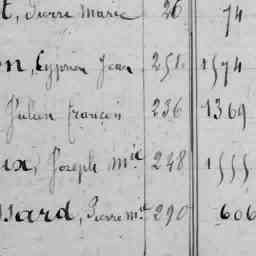 t, Pierre Marie 26 74
on, Cyprien Jean 251 1574
Julien françois 236 1369
ux, Joseph Mie 248 1555
ssard, Pierre Mie 290 606